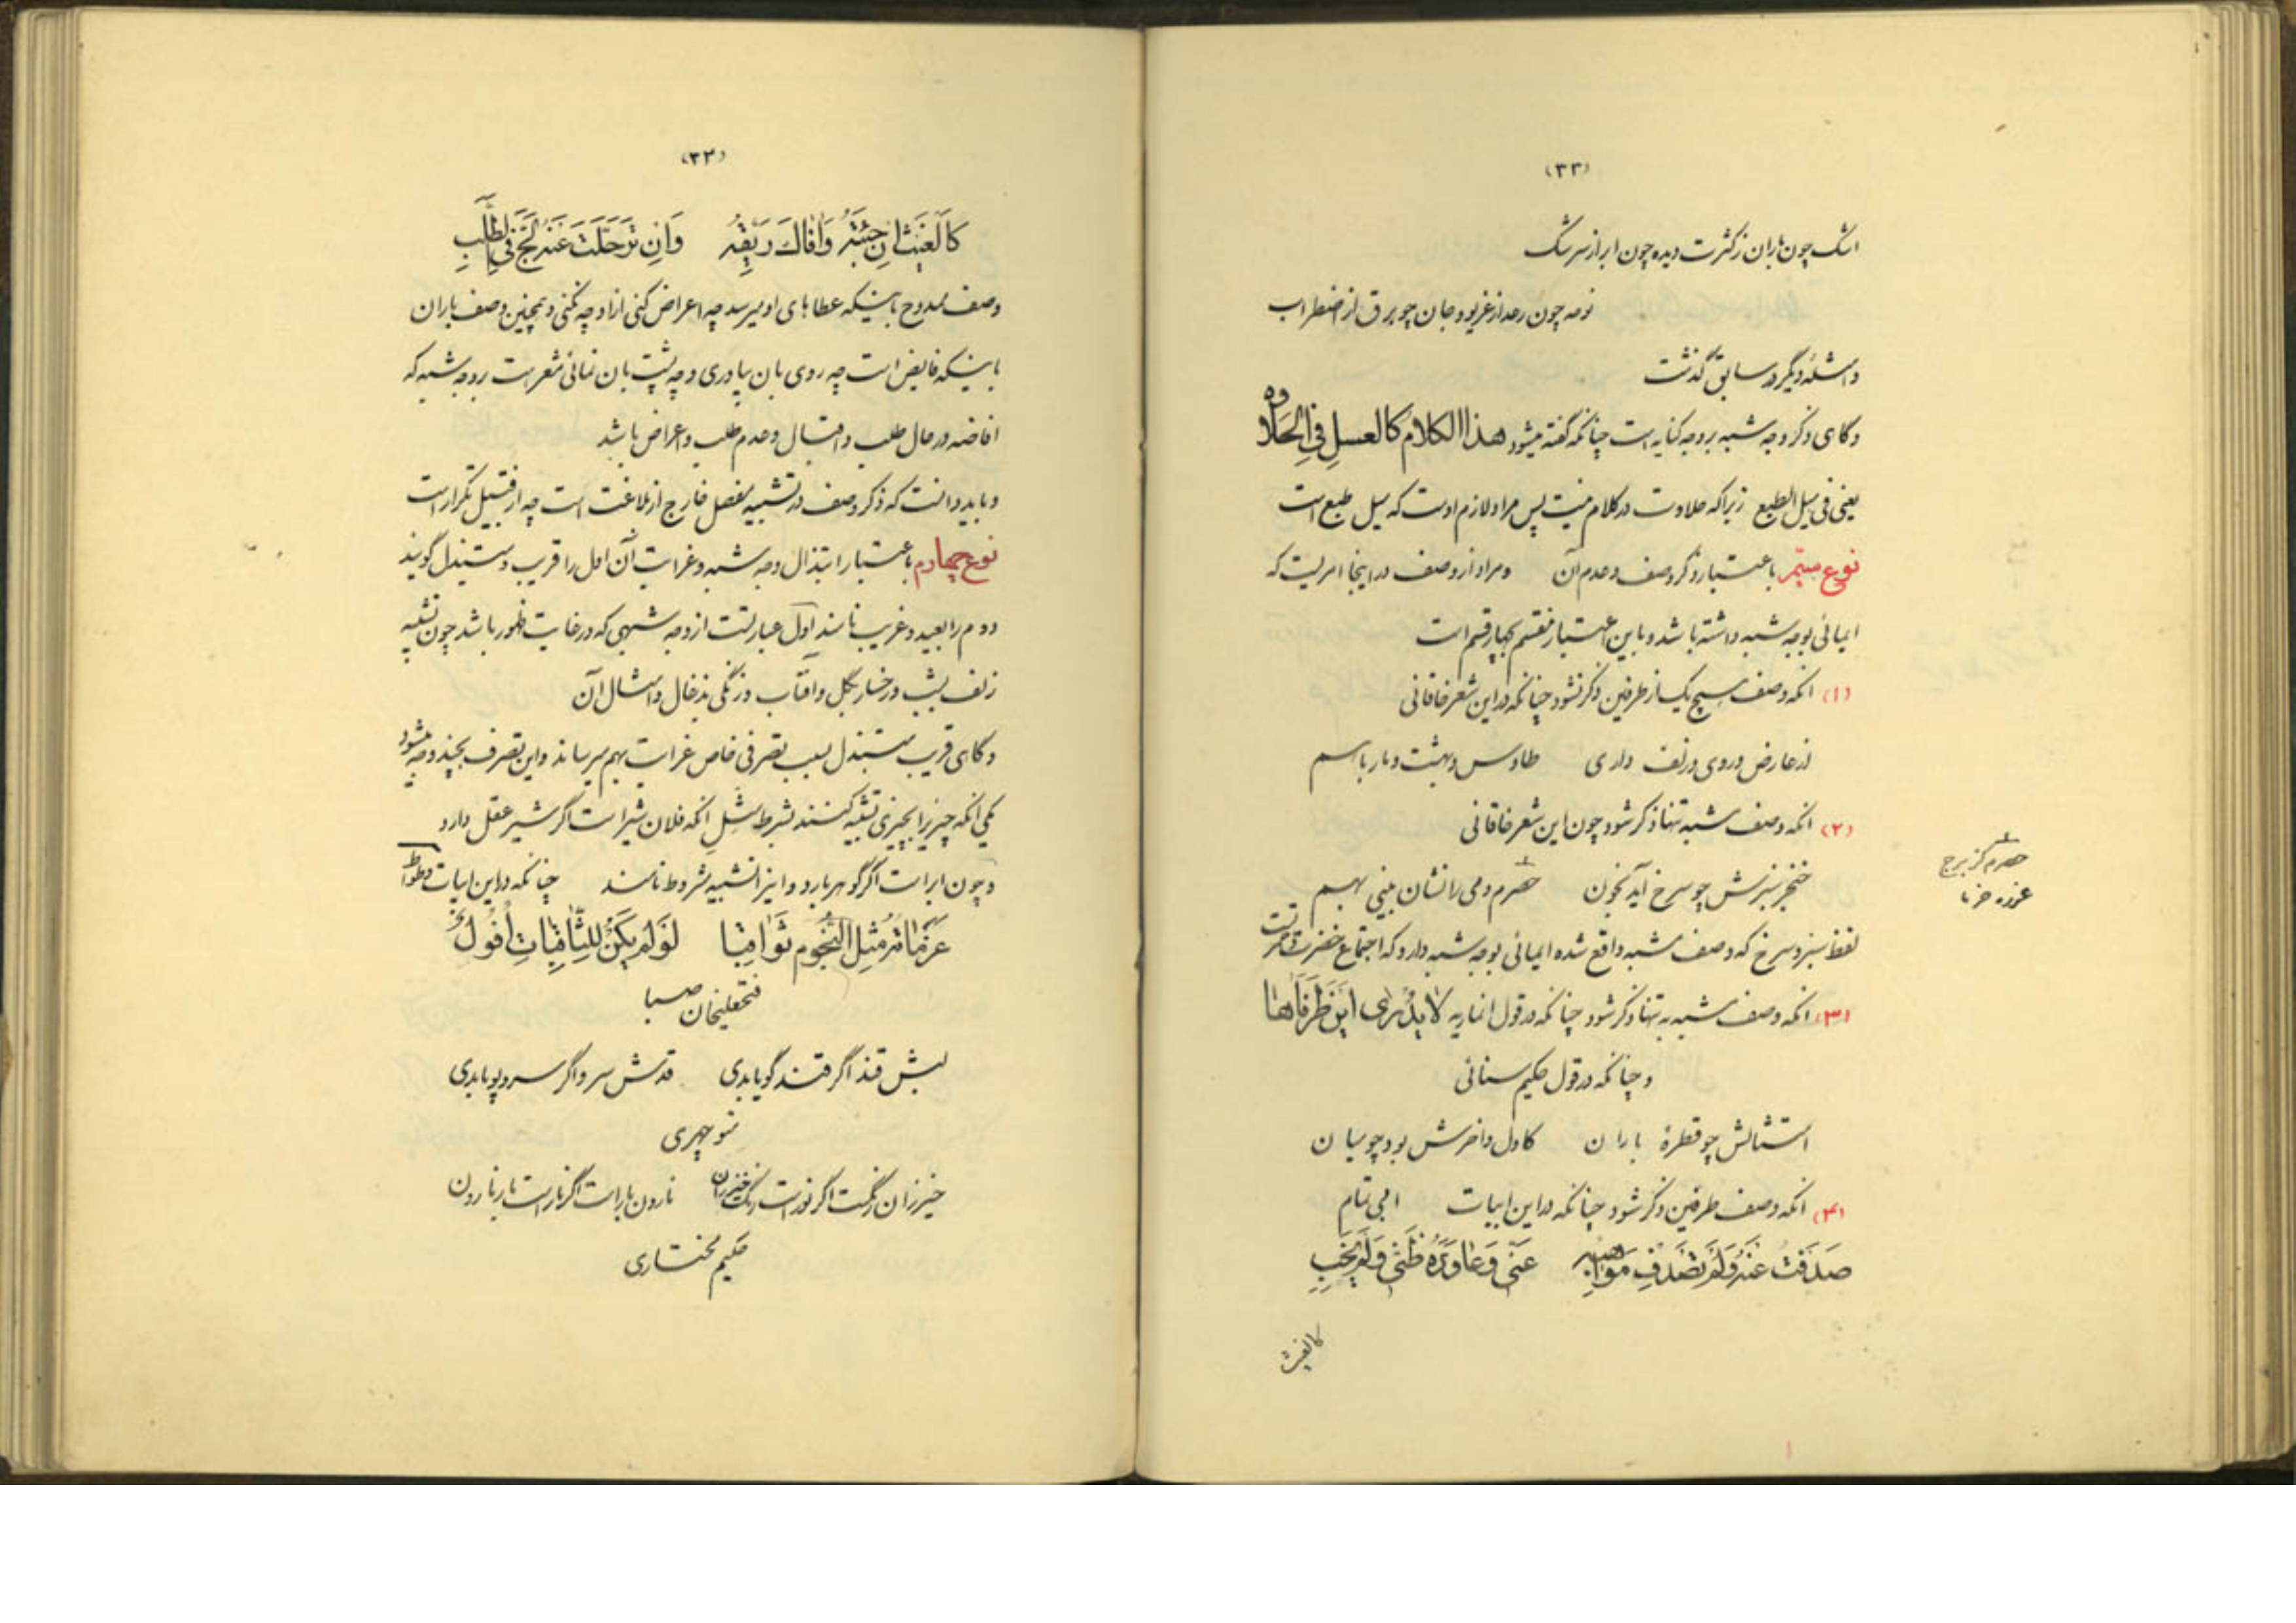 (۳۳)
اشک چون باران ز کثرت دیده چون ابر از سرشک
نوحه چون رعد از غریو و جان چو برق از اضطراب
و امثلهٔ دیگر در سابق گذشت
و گاهی ذکر وجه شبه بر وجه کنایه است چنانکه گفته میشود هذا الکلام کالعسل فی الحلاوه
یعنی فی میل الطبع زیرا که حلاوت در کلام نیست پس مراد لازم اوست که میل طبع است
نوع سیّم باعتبار ذکر وصف و عدم آن و مراد از وصف در اینجا امریست که
ایمائی بوجه شبه داشته باشد و باین اعتبار منقسم بچهار قسم است
(۱) آنکه وصف هیچ یک از طرفین ذکر نشود چنانکه در این شعر خاقانی
از عارض و روی و زلف داری طاوس و بهشت و مار با هم
(۲) آنکه وصف مشبه تنها ذکر شود چون این شعر خاقانی
خنجر سبزش چو سرخ آید بخون حصرم و می را نشان بینی بهم
حصرم کز برج
غوره خرما
لفظ سبز و سرخ که وصف مشبه واقع شده ایمائی بوجه شبه دارد که اجتماع خضرت و حمرتست
(۳) آنکه وصف مشبه به تنها ذکر شود چنانکه در قول انماریه لا یدری این طرفاها
و چنانکه در قول حکیم سنائی
امتثالش چو قطرهٔ باران کاول و اخرش بود چو میان
(۴) آنکه وصف طرفین ذکر شود چنانکه در این ابیات ابی تمام
صَدَفتُ عَنهُ وَلَم تَصدِف مَواهِبُه عَنّی وَعاوَدَهُ ظَنّی وَلَم یَخِبِ
کالغیث
(۳۴)
کَالغَیثِ اِن جِئتَهُ وَافاكَ رَیِّقُهُ وَاِن تَرَحَّلتَ عَنهُ لَجَّ فِی الطَّلَبِ
وصف ممدوح باینکه عطاهای او میرسد چه اعراض کنی از او چه نکنی و همچنین وصف باران
باینکه فایض است چه روی بان بیاوری و چه پشت بان نمائی مشعر است بر وجه شبه که
افاضه در حال طلب و اقبال و عدم طلب و اعراض باشد
و باید دانست که ذکر وصف در تشبیه مفصل خارج از بلاغت است چه از قبیل تکرار است
نوع چهارم باعتبار ابتذال وجه شبه و غرابت آن اول را قریب و مبتذل گویند
دوم را بعید و غریب نامند اول عبارتست از وجه شبهی که در غایت ظهور باشد چون تشبیه
زلف بشب و رخسار بگل و آفتاب و زنگی بذغال و امثال آن
و گاهی قریب مبتذل بسبب تصرفی خاص غرابت بهم میرساند و این تصرف بچند وجه میشود
یکی آنکه چیزیرا بچیزی تشبیه کنند بشرط مثل آنکه فلان شیر است اگر شیر عقل دارد
و چون ابر است اگر گوهر بارد و اینرا تشبیه مشروط نامند چنانکه در این ابیات وطواط
عَزَماتُهُ مِثلُ النُّجُومِ ثَواقِبا لَو لَم یَکُن لِلثّاقِباتِ اُفُولُ
فتحعلیخان صبا
لبش قند اگر قند گویا بدی قدش سرو اگر سرو پویا بدی
منوچهری
خیزران رنگست اگر نور است رنگ خیزران نارون بار است اگر نار است بار نارون
حکیم مختاری